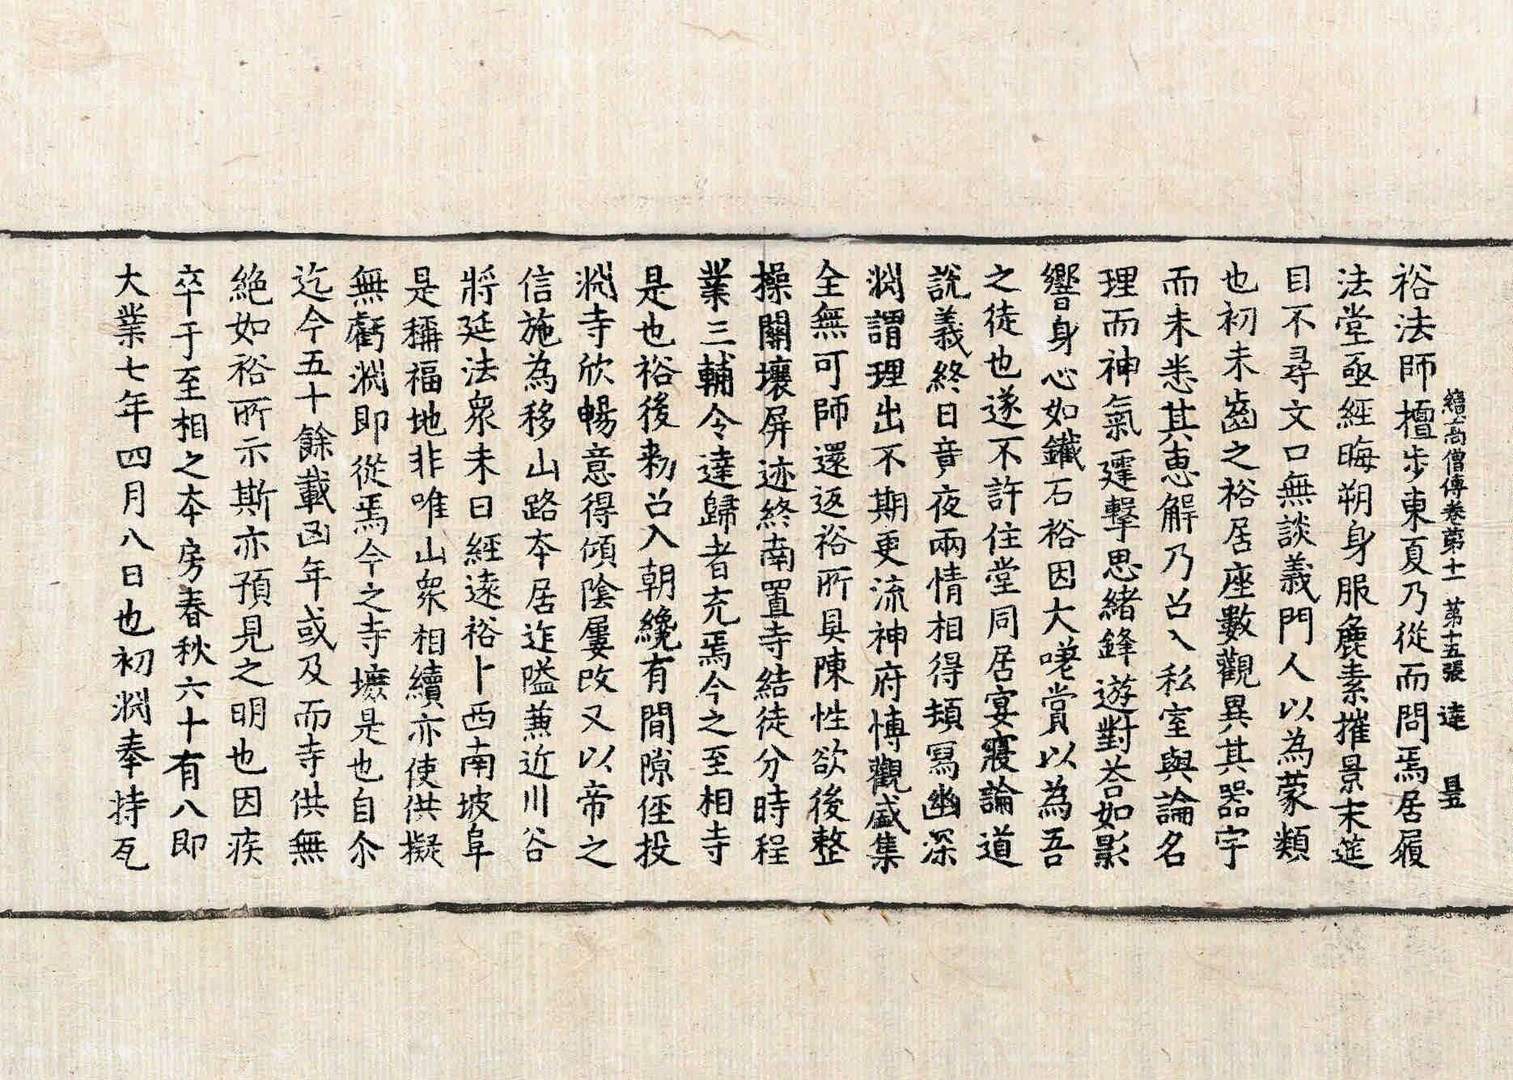 續高僧傳卷第十一 第十五張 達 昱
裕法師檀步東夏乃從而問焉居履
法堂亟經晦朔身服麁素摧景末筵
目不尋文口無談義門人以為蒙類
也初未齒之裕居座數觀異其器宇
而未悉其恵解乃召入私室與論名
理而神氣霆擊思緒鋒遊對荅如影
響身心如鐵石裕因大嗟賞以為吾
之徒也遂不許住堂同居宴寢論道
說義終日竟夜兩情相得頓寫幽深
渕謂理出不期更流神府博觀盛集
全無可師還返裕所具陳性欲後整
操關壤屏迹終南置寺結徒分時程
業三輔令達歸者充焉今之至相寺
是也裕後勑召入朝纔有間隙徑投
渕寺欣暢意得傾陰屢改又以帝之
信施為移山路夲居迮隘兼近川谷
將延法衆未日經遠裕卜西南坡阜
是稱福地非唯山衆相續亦使供擬
無虧渕即從焉今之寺墌是也自尒
迄今五十餘載凶年或及而寺供無
絕如裕所示斯亦預見之明也因疾
卒于至相之夲房春秋六十有八即
大業七年四月八日也初渕奉持瓦